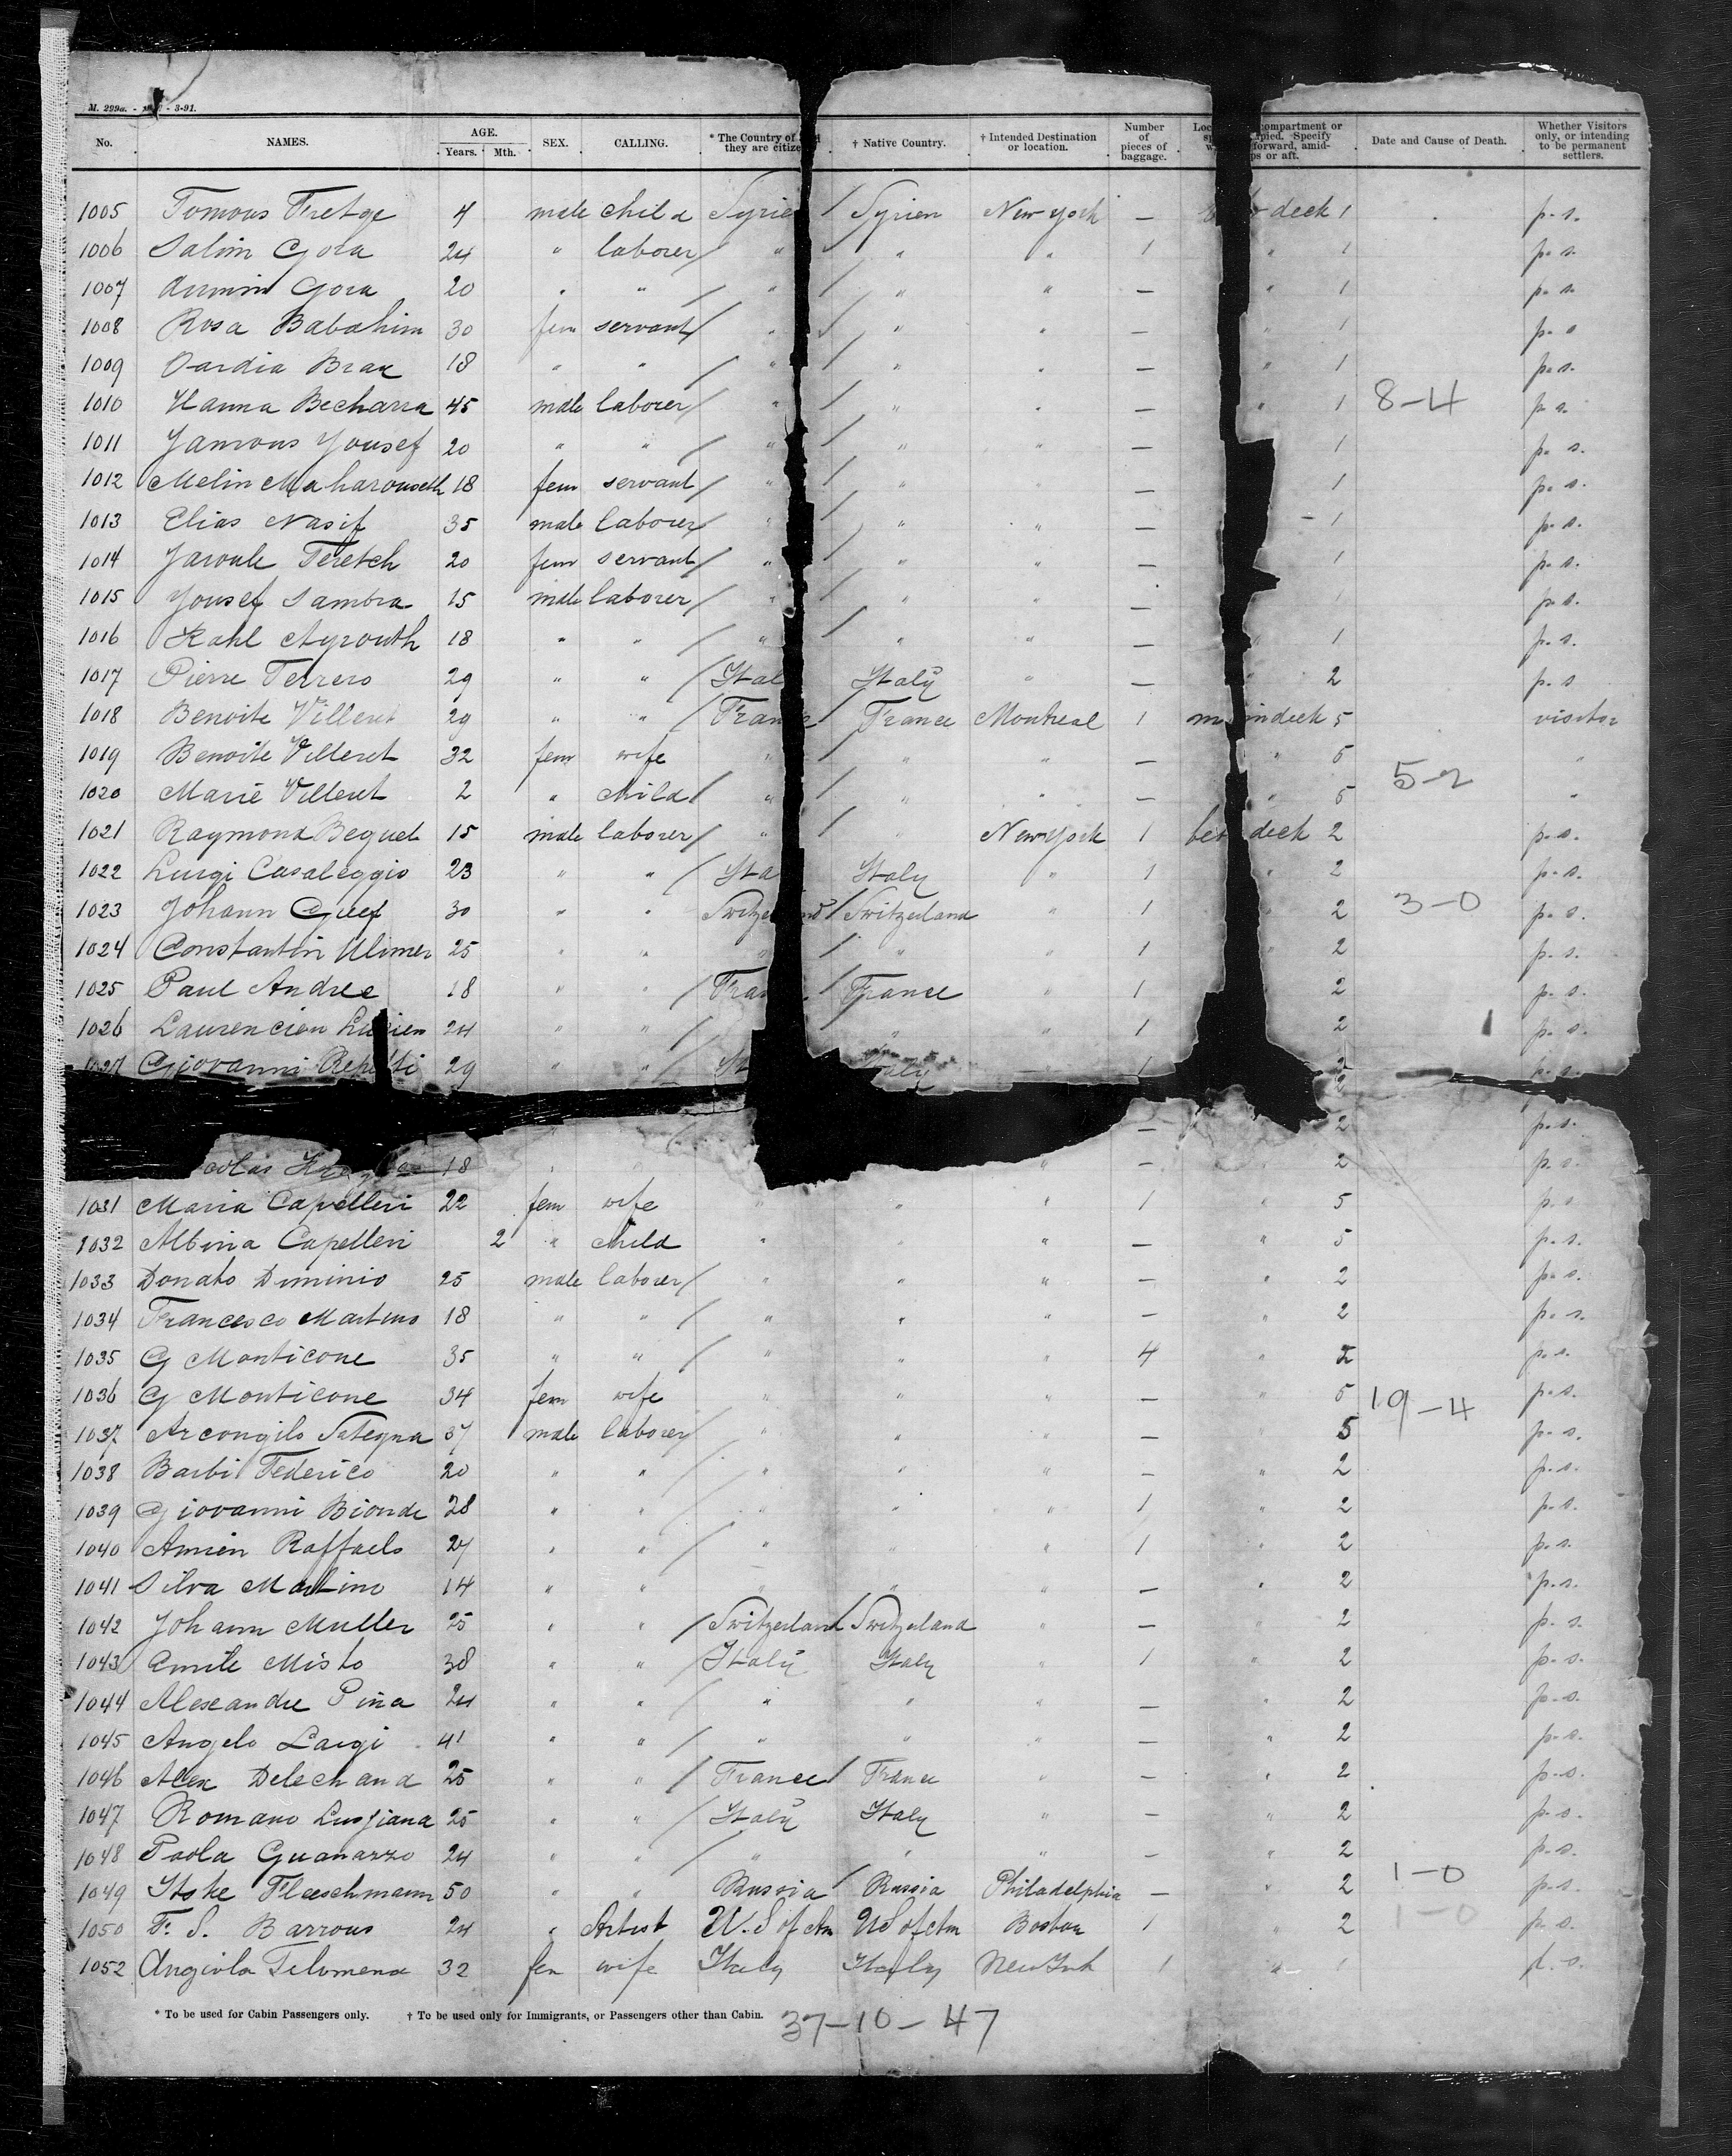 M. 299a. - - 3-91.
No. NAMES. AGE. Years. Mth. SEX. CALLING. * The Country of they are citize † Native Country. † Intended Destination or location. Number of pieces of baggage. Loc compartment or pied. Specify forward, amid- ps or aft. Date and Cause of Death. Whether Visitors only, or intending to be permanent settlers.
1005 Tomous Fretge 4 male child Syrie / Syrien New York — deck 1 p-s.
1006 Salim Gora 24 " laborer / " " " 1 " 1 p-s.
1007 Gora 20 " " / " / " " — " 1 p-s
1008 Rosa Babahim 30 fem servant / " / " " — " 1 p-s
1009 Vardia Brax 18 " " / " / " " — " 1 p-s.
1010 Hanna Becharra 45 male laborer / " / " " — " 1 8-4 p-s.
1011 Yamous Yousef 20 " " / " / " " — 1 p-s.
1012 Melin Maharouseth 18 fem servant / " / " — 1 p-s.
1013 Elias Nasif 35 male laborer / " / " " — 1 p-s.
1014 Jaroule Teretch 20 fem servant / " / " " — 1 p-s.
1015 Yousef Sambra 15 male laborer / " / " " — p-s.
1016 Kahl Ayrouth 18 " " / " / " " — 1 p-s.
1017 Pierre Terrero 29 " " / Ital Italy " — " 2 p-s
1018 Benoite Villeret 29 " " / France / France Montreal 1 m indeck 5 visitor
1019 Benoite Villeret 32 fem wife " / " " — " 5 "
1020 Marie Villeret 2 " child / " / " " — " 5 5-2 "
1021 Raymond Bequet 15 male laborer / " / " New York 1 bet deck 2 p-s.
1022 Luigi Casaleggio 23 " " / Ita Italy " 1 " 2 p-s.
1023 Johann Guef 30 " " Switze nd / Switzerland " 1 " 2 3-0 p-s.
1024 Constantin Ulimer 25 " " " / " " 1 " 2 p-s.
1025 Paul Andree 18 " " / Fra / France " 1 2 p-s.
1026 Laurencien Lucien 24 " " / " 1 2 p-s.
1027 Giovanni Repetti 29 " " / It Italy 1 2 p-s.
2
— 2 p-s.
colas 18 " " — 2 p-s.
1031 Maria Capelleri 22 fem wife " " " 1 " 5 p-s
1032 Albina Capelleri 2 " child " " " — " 5 p-s.
1033 Donato Diminio 25 male laborer / " " " — " 2 p-s.
1034 Francesco Martino 18 " " / " " " — " 2 p-s.
1035 G Monticone 35 " " / " " " 4 " p-s.
1036 G Monticone 34 fem wife " " " — " 5 19-4 p-s.
1037 Arcongilo Sategna 37 male laborer / " " " — 5 p-s.
1038 Barbi Federico 20 " " / " " " — " 2 p-s.
1039 Giovanni Bionde 28 " " / " " " 1 " 2 p-s.
1040 Amien Raffaelo 27 " " / " " " 1 " 2 p-s.
1041 Silva Martino 14 " " " " " — " 2 p-s.
1042 Johann Muller 25 " " / Switzerland / Switzerland " — 2 p-s.
1043 Emile Misto 38 " " / Italy Italy " 1 " 2 p-s.
1044 Alexandre Pina 24 " " / " " " — " 2 p-s.
1045 Angelo Laigi 41 " " / " " " — " 2 p-s.
1046 Alex Delechand 25 " " / France / France " — " 2 p-s.
1047 Romano Lusjiana 25 " " / Italy Italy " — " 2 p-s.
1048 Paola Guanazzo 24 " " / " " " — " 2 p-s.
1049 Itske Fleeschmann 50 " " Russia / Russia Philadelphia — " 2 1-0 p-s.
1050 F. S. Barrows 24 " Artist U. S of Am US of Am Boston 1 " 2 1-0 p-s.
1052 Angiola Filomena 32 fem wife Italy Italy New York 1 " 1 p. s.
* To be used for Cabin Passengers only. † To be used only for Immigrants, or Passengers other than Cabin.
37-10-47